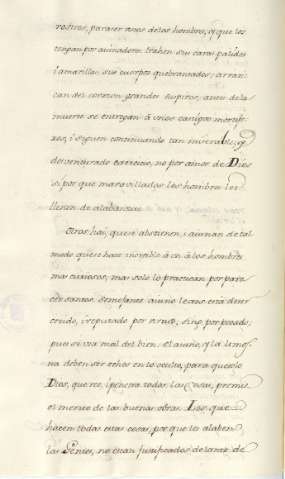 rostros, para ser amos de los hombres, y que les
tengan por ayunadores: trahen sus caras palidas
i amarillas sus cuerpos quebrantados: arran-
can del corazon grandes suspiros, antes de la
muerte se entregan á unos castigos mortife-
ros, i siguen continuando tan miserable, y
desventurado exercicio, no por amor de Dios
si por que maravillados los hombres los
llenen de alabanzas.
Otros hai, que se abstienen, i ayunan de tal
modo que se hace increible á los hombres
mas curiosos; mas solo lo practican por pare
cer santos. Semejante ayuno lexos está de ser
creido, i reputado por virtud, sino por pecado;
pues si usa mal del bien. El ayuno, y la limos
na deben ser echos en lo oculto, para que solo
Dios, que ve, i penetra todas las cosas, premie
el merito de las buenas obras. Los que
hacen todas estas cosas, por que los alaben
las Gentes, no estan justificados delante de